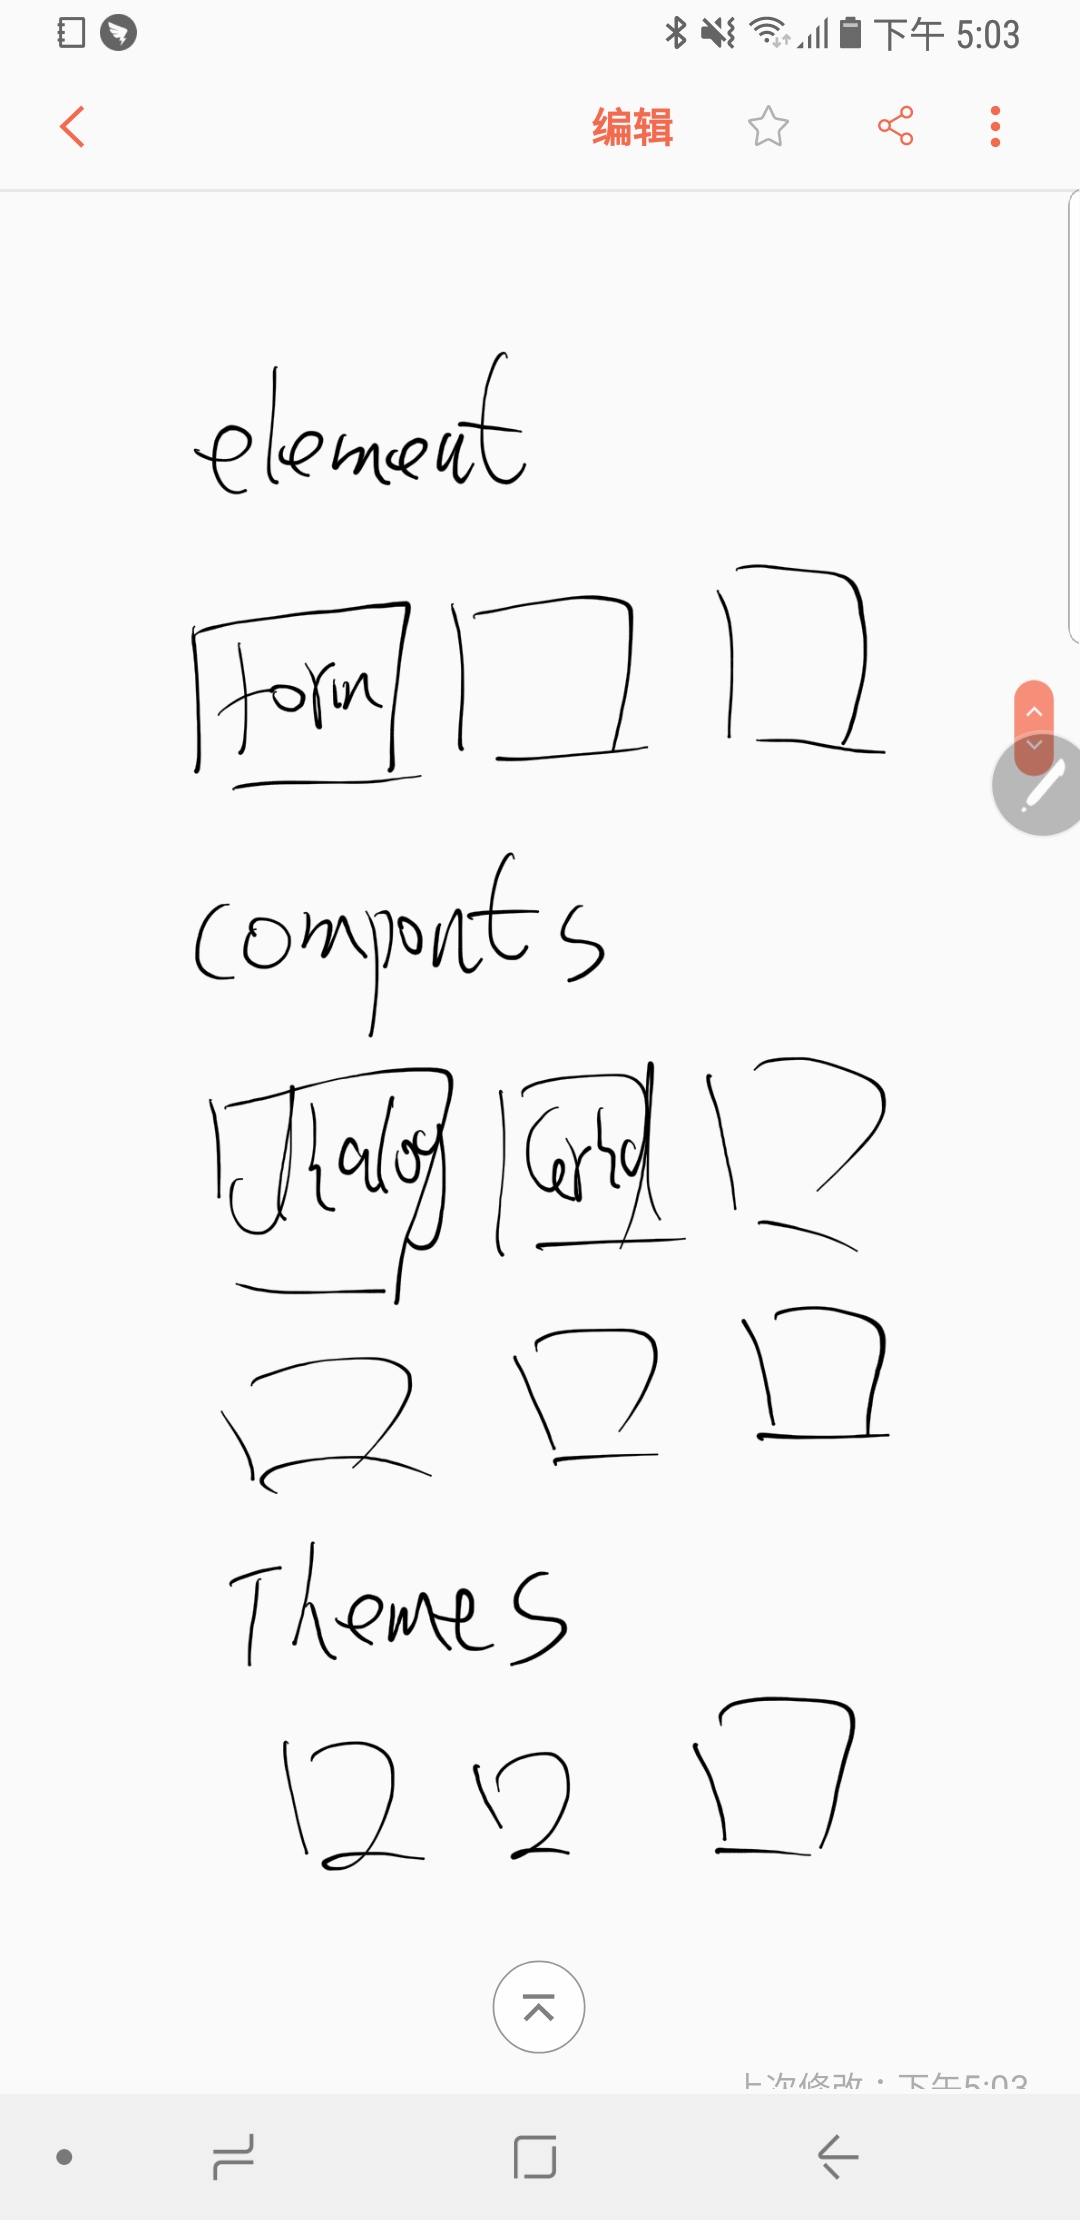 下午 5:03
编辑
element
form
componts
Dialog Grid
Themes
上次修改：下午5:03